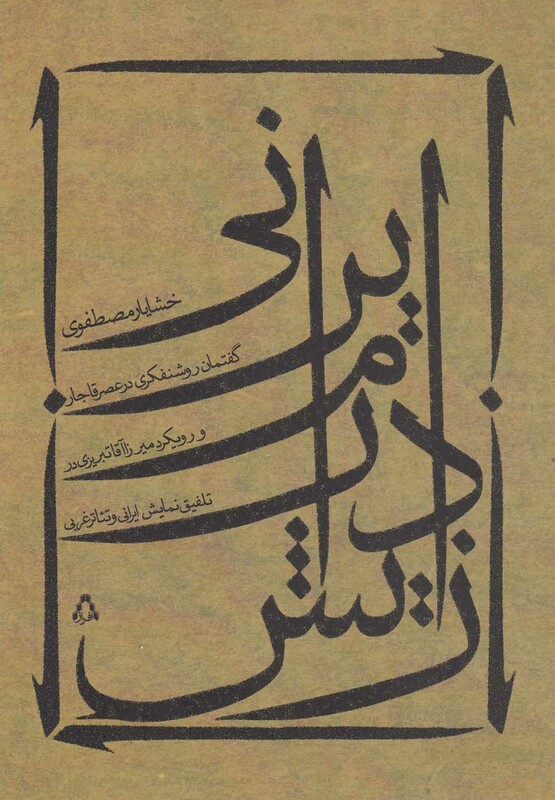 زایش
درام
ایرانی
خشایار مصطفوی
گفتمان روشنفکری در عصر قاجار
و رویکرد میرزا آقا تبریزی در
تلفیق نمایش ایرانی و تئاتر غربی
افراز